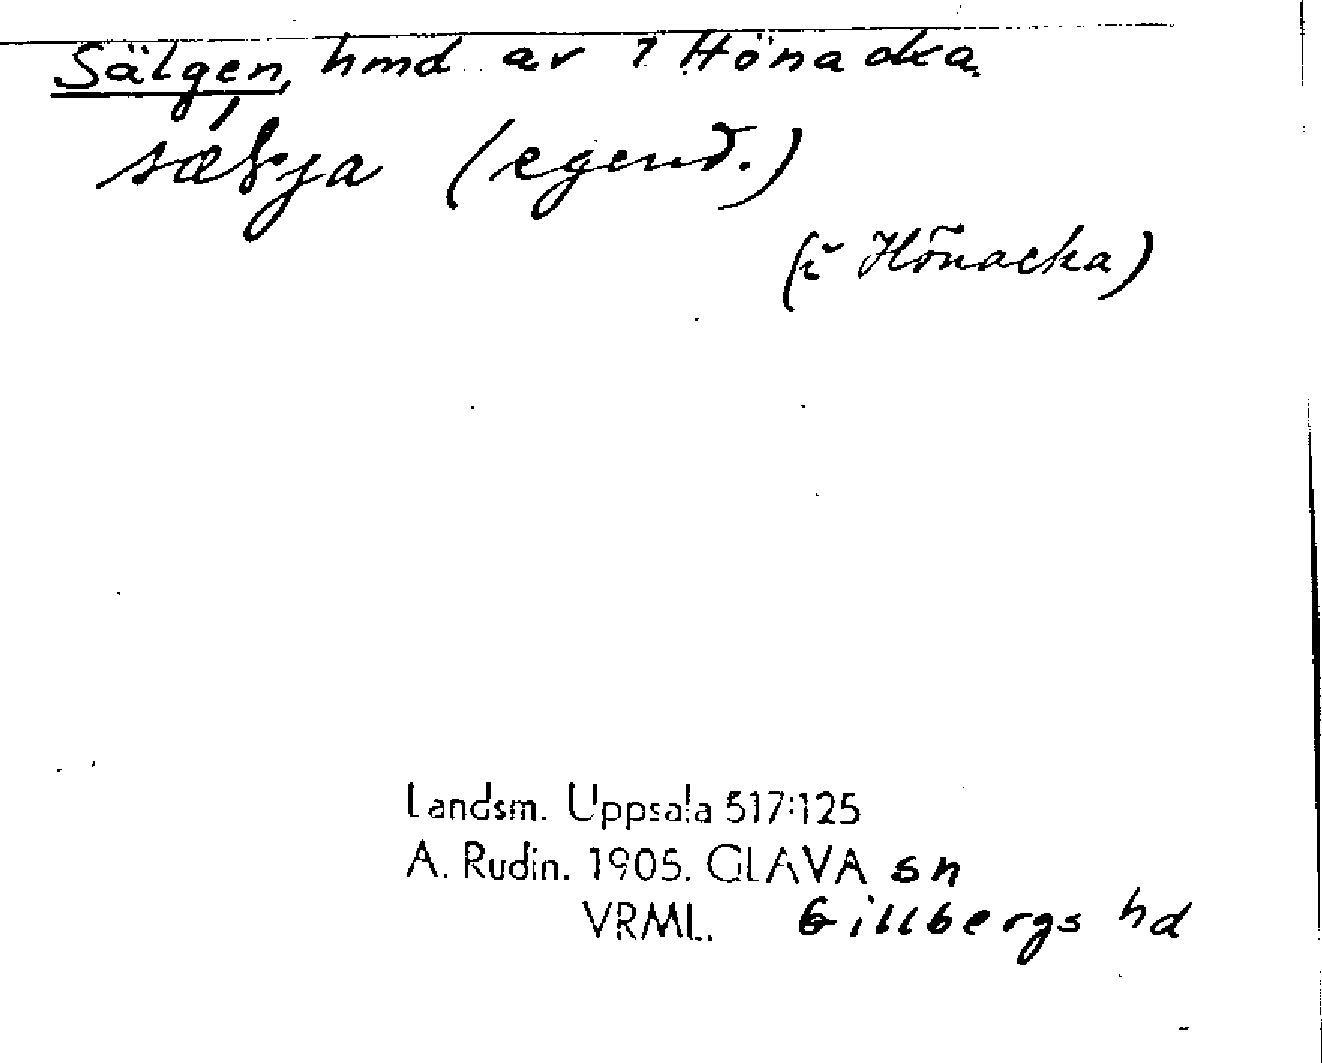 Sälgen, hmd av 1 Hönacka
(egend.)
(i Hönacka)
Landsm. Uppsala 517:125
A. Rudin. 1905. GLAVA sn
VRML. Gillbergs hd